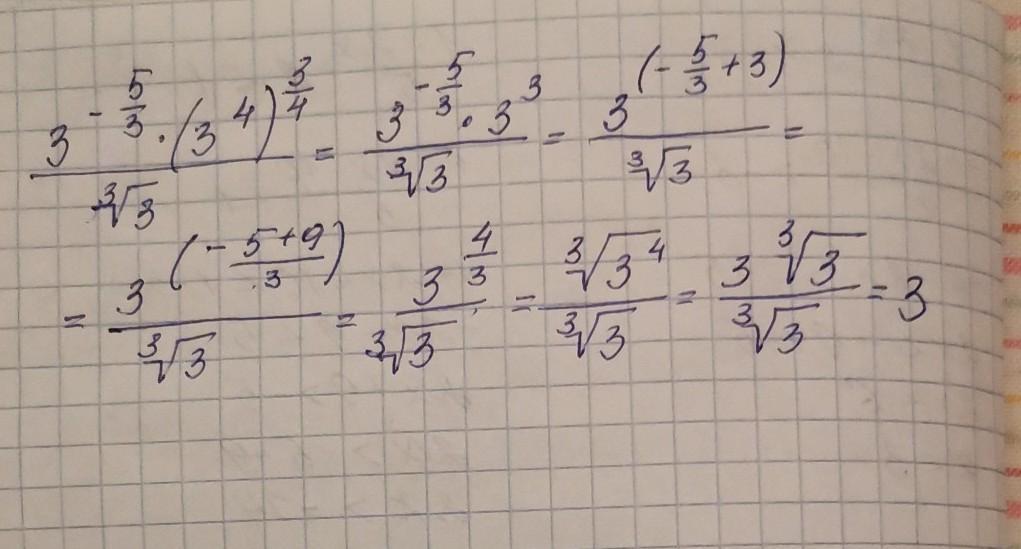 \frac{3^{-\frac{5}{3}} \cdot (3^4)^{\frac{3}{4}}}{\sqrt[3]{3}} = \frac{3^{-\frac{5}{3}} \cdot 3^3}{\sqrt[3]{3}} = \frac{3^{(-\frac{5}{3}+3)}}{\sqrt[3]{3}} =
= \frac{3^{(-\frac{5+9}{3})}}{\sqrt[3]{3}} = \frac{3^{\frac{4}{3}}}{\sqrt[3]{3}} = \frac{\sqrt[3]{3^4}}{\sqrt[3]{3}} = \frac{3\sqrt[3]{3}}{\sqrt[3]{3}} = 3